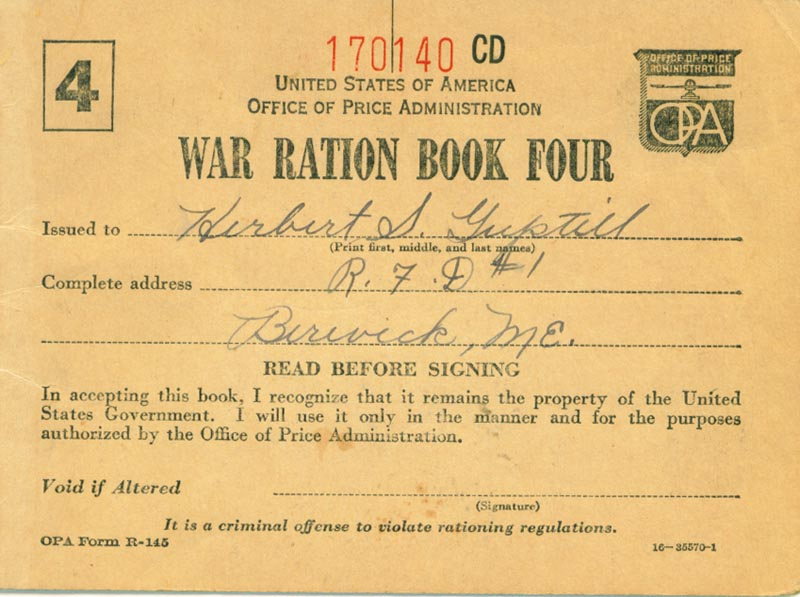 170140 CD
4
UNITED STATES OF AMERICA
OFFICE OF PRICE ADMINISTRATION
OFFICE OF PRICE
ADMINISTRATION
OPA
WAR RATION BOOK FOUR
Issued to Herbert S. Guptill
(Print first, middle, and last names)
Complete address R. F. D #1
Berwick, ME.
READ BEFORE SIGNING
In accepting this book, I recognize that it remains the property of the United
States Government. I will use it only in the manner and for the purposes
authorized by the Office of Price Administration.
Void if Altered
(Signature)
It is a criminal offense to violate rationing regulations.
OPA Form R-145
16—35570-1